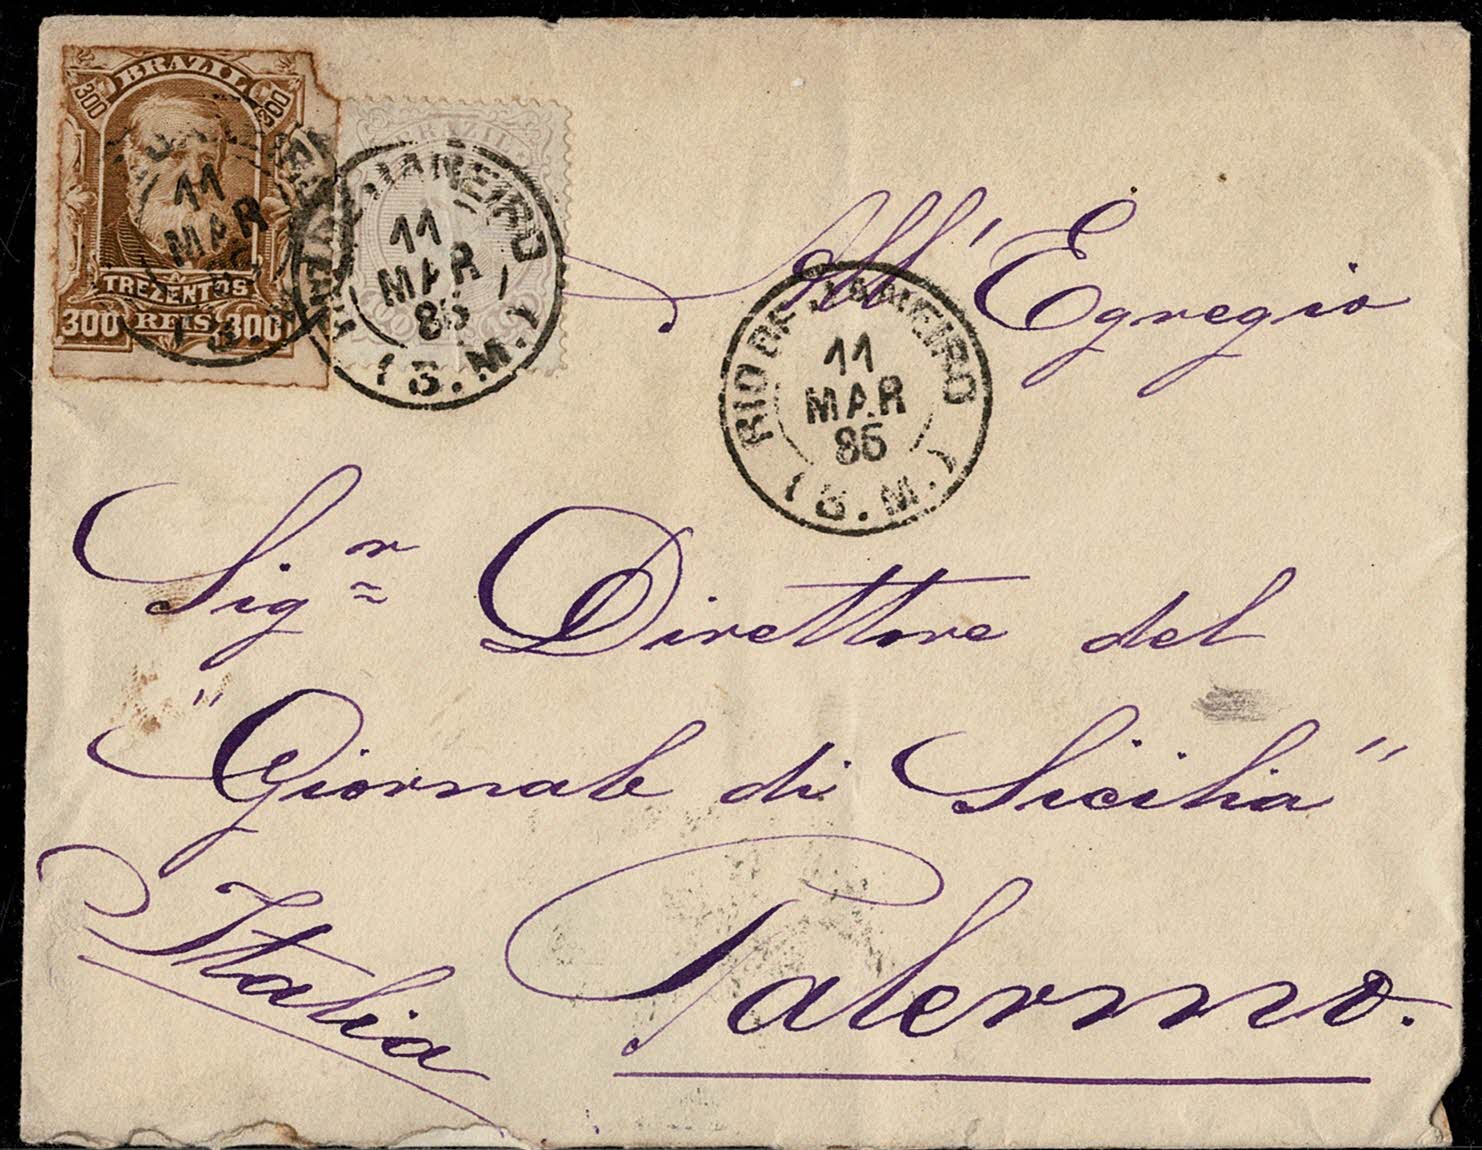 BRAZIL
300 300
TREZENTOS
300 REIS 300
11
MAR
BRAZIL
RIO DE JANEIRO
11
MAR
86
(3.M.)
All' Egregio
RIO DE JANEIRO
11
MAR
86
(3.M.)
Sigr Direttore del
"Giornale di Sicilia"
Palermo.
Italia